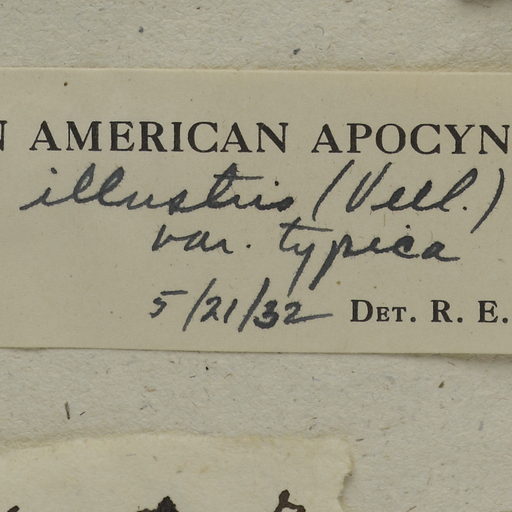 N AMERICAN APOCYN
illustris (Vell.)
var. typica
5/21/32 DET. R. E.